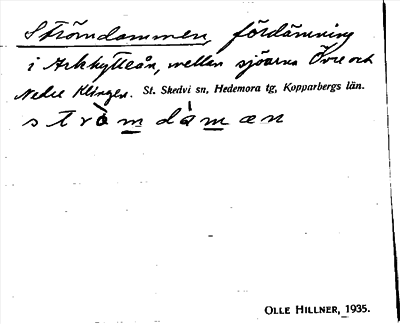 Strömdammen, fördämning
i Arkhytteån, mellan sjöarna Övre och
Nedre Klingen. St. Skedvi sn, Hedemora tg, Kopparbergs län.
strò̀m dàmæn
OLLE HILLNER, 1935.